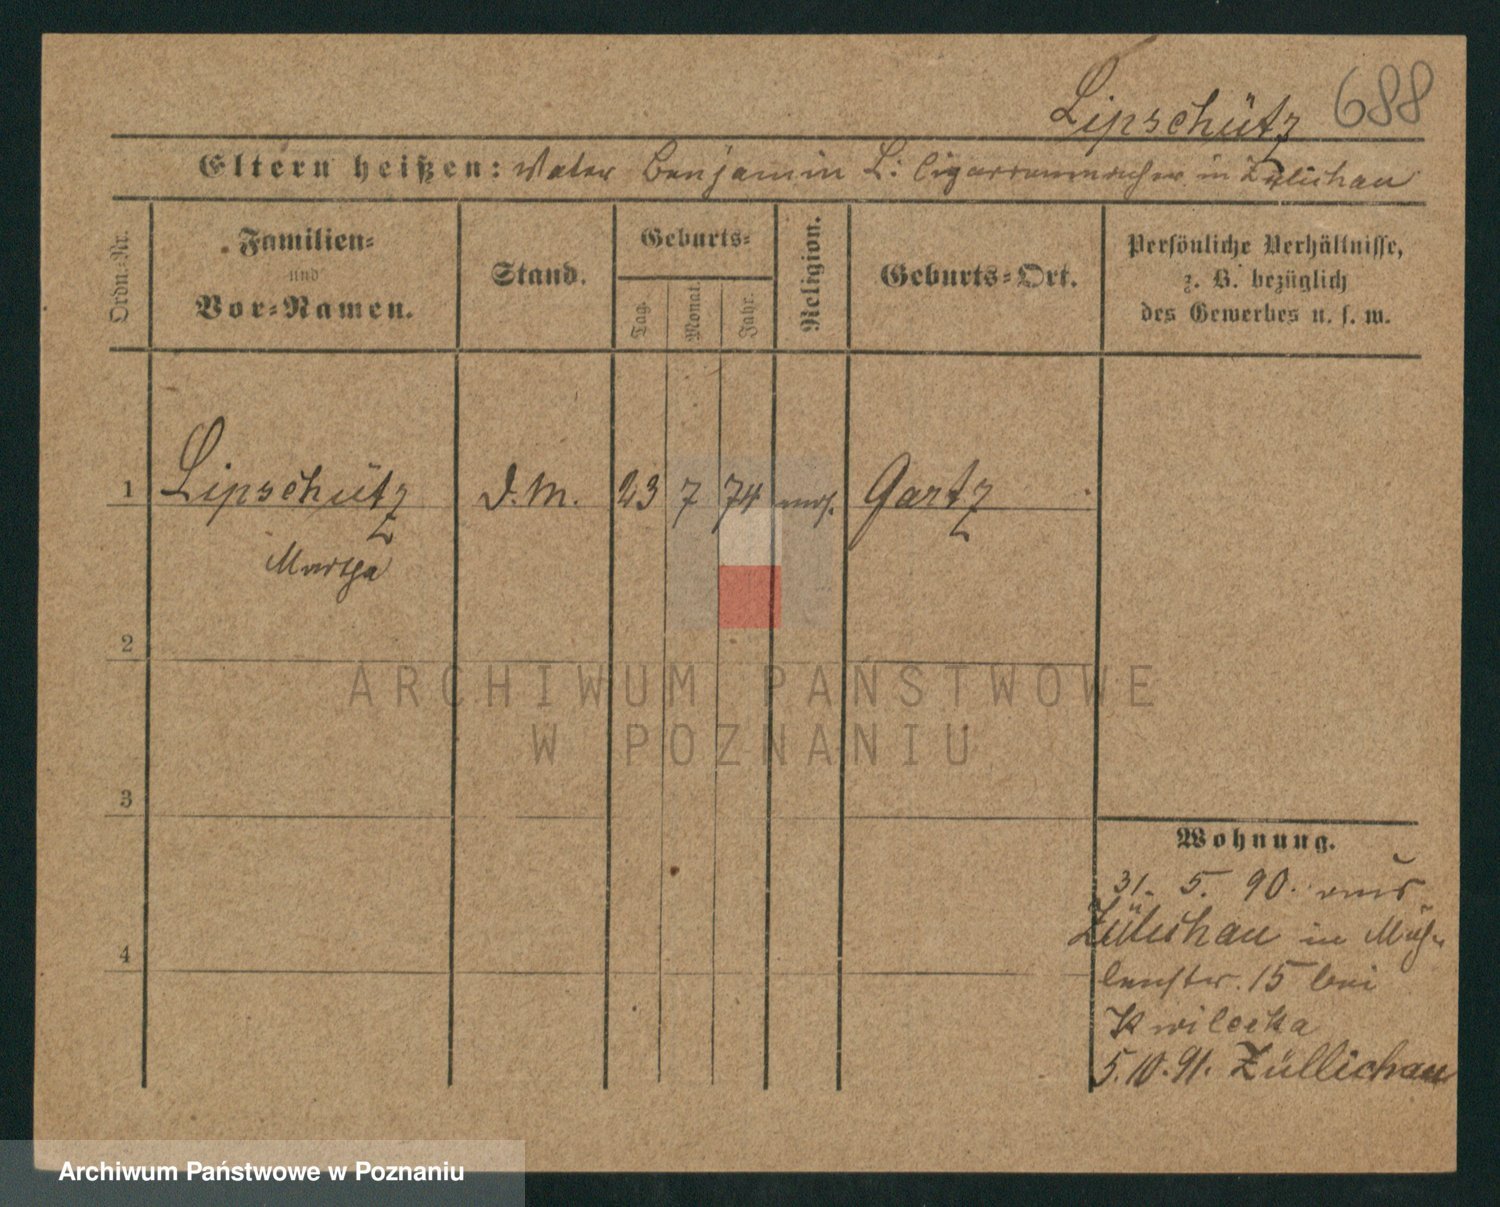 Lipschütz 688
Eltern heißen: Vater Benjamin L. Cigarrenmacher in Züllichau
Ordn.-Nr.
Familien-
und
Vor-Namen.
Stand.
Geburts-
Tag.
Monat.
Jahr.
Religion.
Geburts-Ort.
Persönliche Verhältnisse,
z. B. bezüglich
des Gewerbes u. s. w.
1 Lipschütz D. M. 23 7 74 mos. Gartz
Martha
2
3
4
Wohnung.
31. 5. 90. aus
Züllichau in Müh-
lenstr. 15 bei
Kwilecka
5.10.91. Züllichau
ARCHIWUM PAŃSTWOWE
W POZNANIU
Archiwum Państwowe w Poznaniu